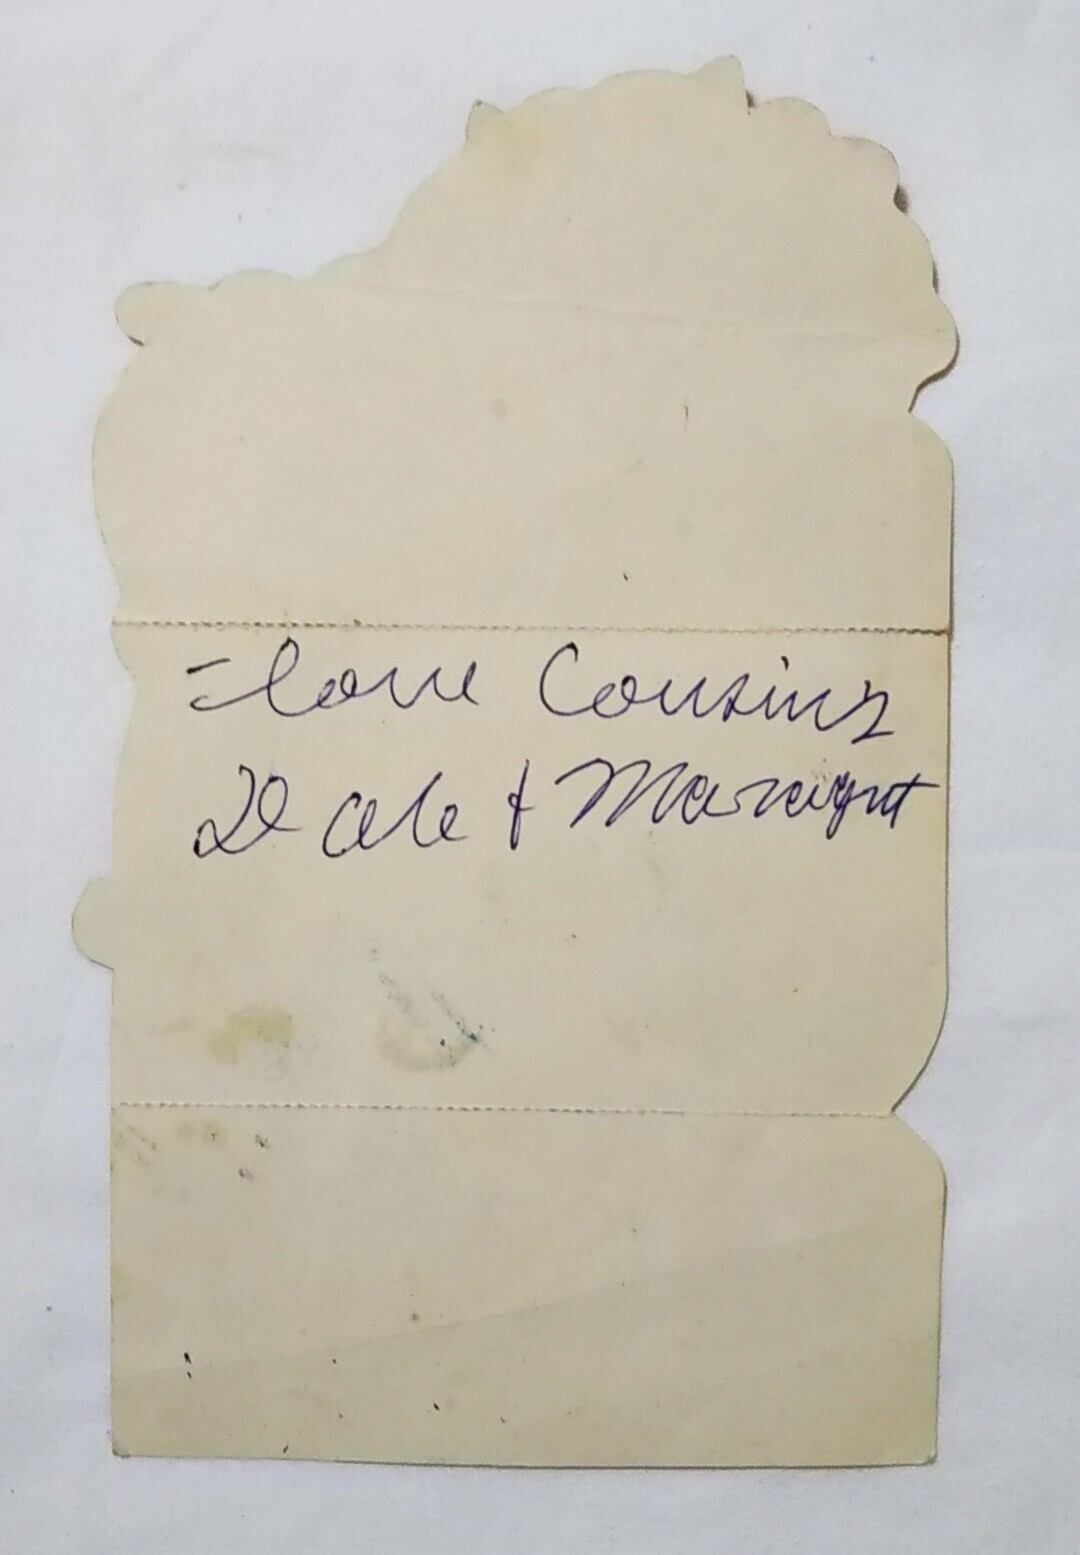 = love Cousins
Dale & Margaret